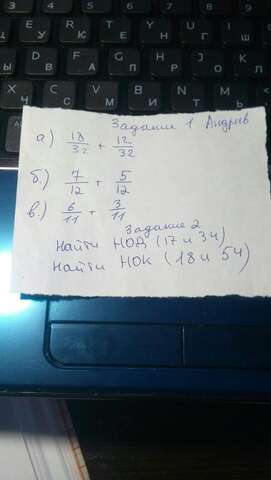 Задание 1 Андрей
а) 18/32 + 12/32
б.) 7/12 + 5/12
в.) 6/11 + 3/11
Задание 2
Найти НОД (17 и 34)
Найти НОК (18 и 54)